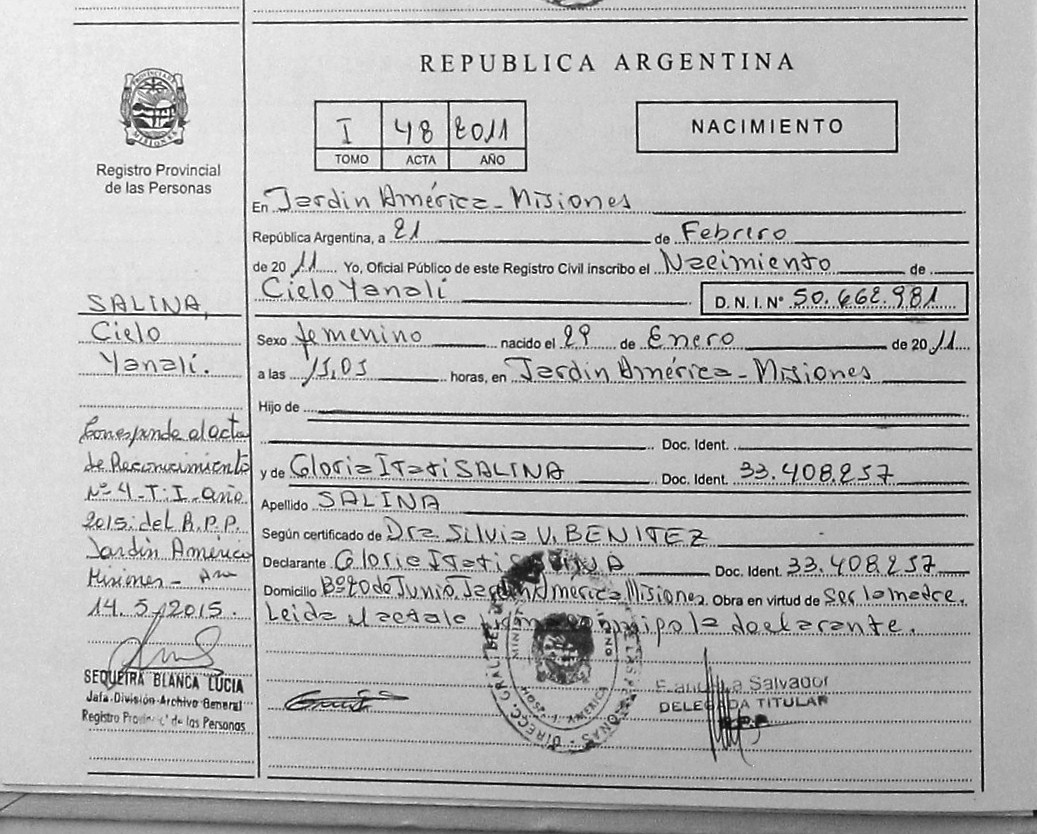 REPUBLICA ARGENTINA
PROVINCIA DE MISIONES
Registro Provincial
de las Personas
I 48 2011
TOMO ACTA AÑO
NACIMIENTO
En Jardin América - Misiones
República Argentina, a 21 de Febrero
de 2011 Yo, Oficial Público de este Registro Civil inscribo el Nacimiento de
Cielo Yanalí D.N.I. Nº 50.662.981
Sexo femenino nacido el 29 de Enero de 2011
a las horas, en Jardin América - Misiones
Hijo de
Doc. Ident.
y de Gloria Itati SALINA Doc. Ident. 33.408.257
Apellido SALINA
Según certificado de Dra Silvia V. BENITEZ
Declarante Gloria Itati Doc. Ident. 33.408.257
Domicilio Bº 20 de Junio, Jardin America, Misiones. Obra en virtud de Ser la madre.
Leida el acta la declarante.
SALINA,
Cielo
Yanalí.
Corresponde al acta
de Reconocimiento
Nº 4 - T. I - año
2015 del R.P.P.
Jardin América
Misiones -
14.5/2015.
SEQUEIRA BLANCA LUCIA
Jefa-División-Archivo General
Registro Provincial de las Personas
Salvador
DELEGADA TITULAR
R.P.P.